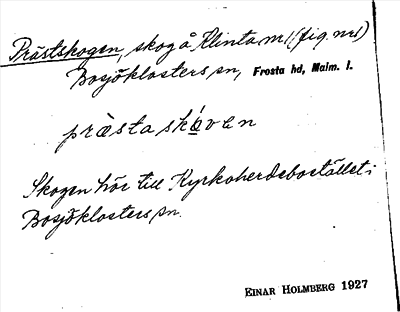 Prästskogen, skog å Klinta nr 1 (fig. nr 1)
Bosjöklosters sn, Frosta hd, Malm. l.
præ̀staskó̱ven
Skogen hör till Kyrkoherdebostället i
Bosjöklosters sn.
EINAR HOLMBERG 1927